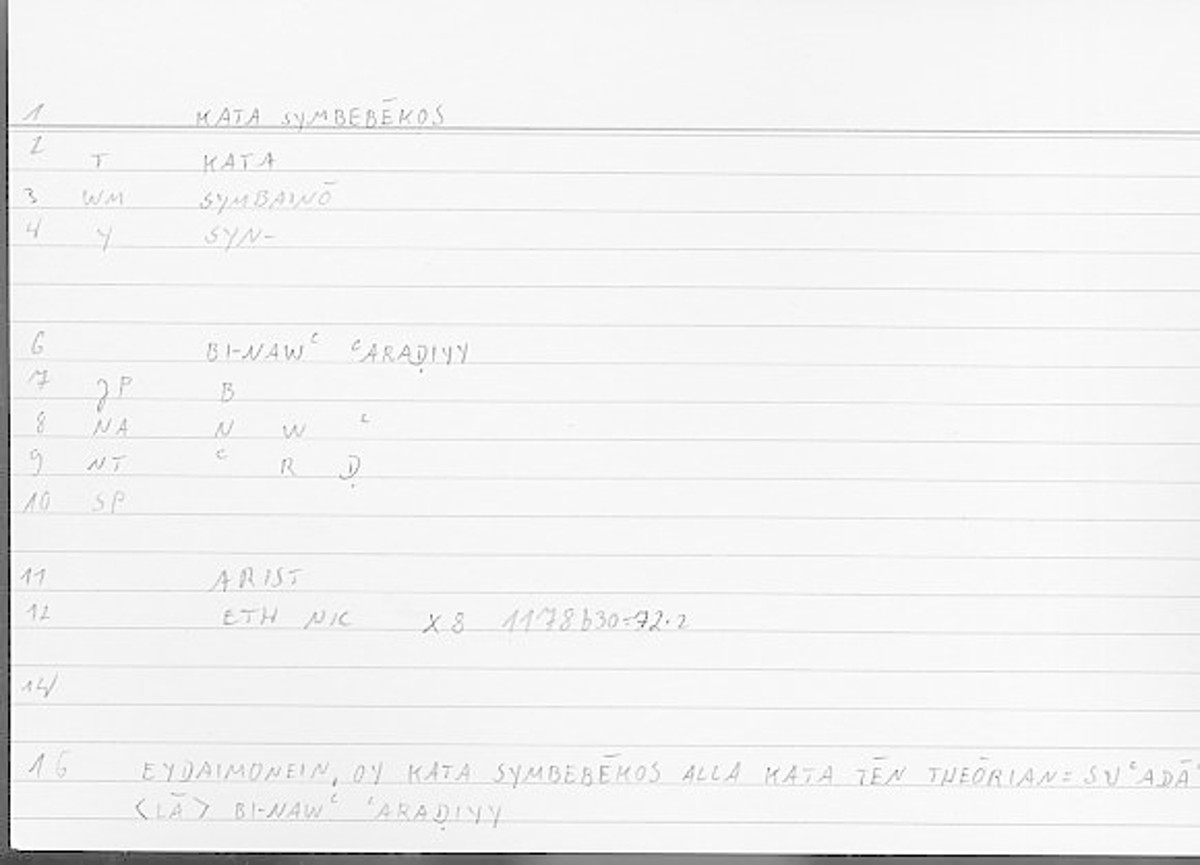 1 KATA SYMBEBĒKOS
2 T KATA
3 WM SYMBAINŌ
4 Y SYN-
6 BI-NAWʿ ʿARAḌIYY
7 P B
8 NA N W ʿ
9 NT ʿ R Ḍ
10 SP
11 ARIST
12 ETH NIC X 8 1178b30=72.2
14
16 EYDAIMONEIN, OY KATA SYMBEBĒKOS ALLA KATA TĒN THEŌRIAN= SUʿADĀʾ
<LĀ> BI-NAWʿ ʿARAḌIYY